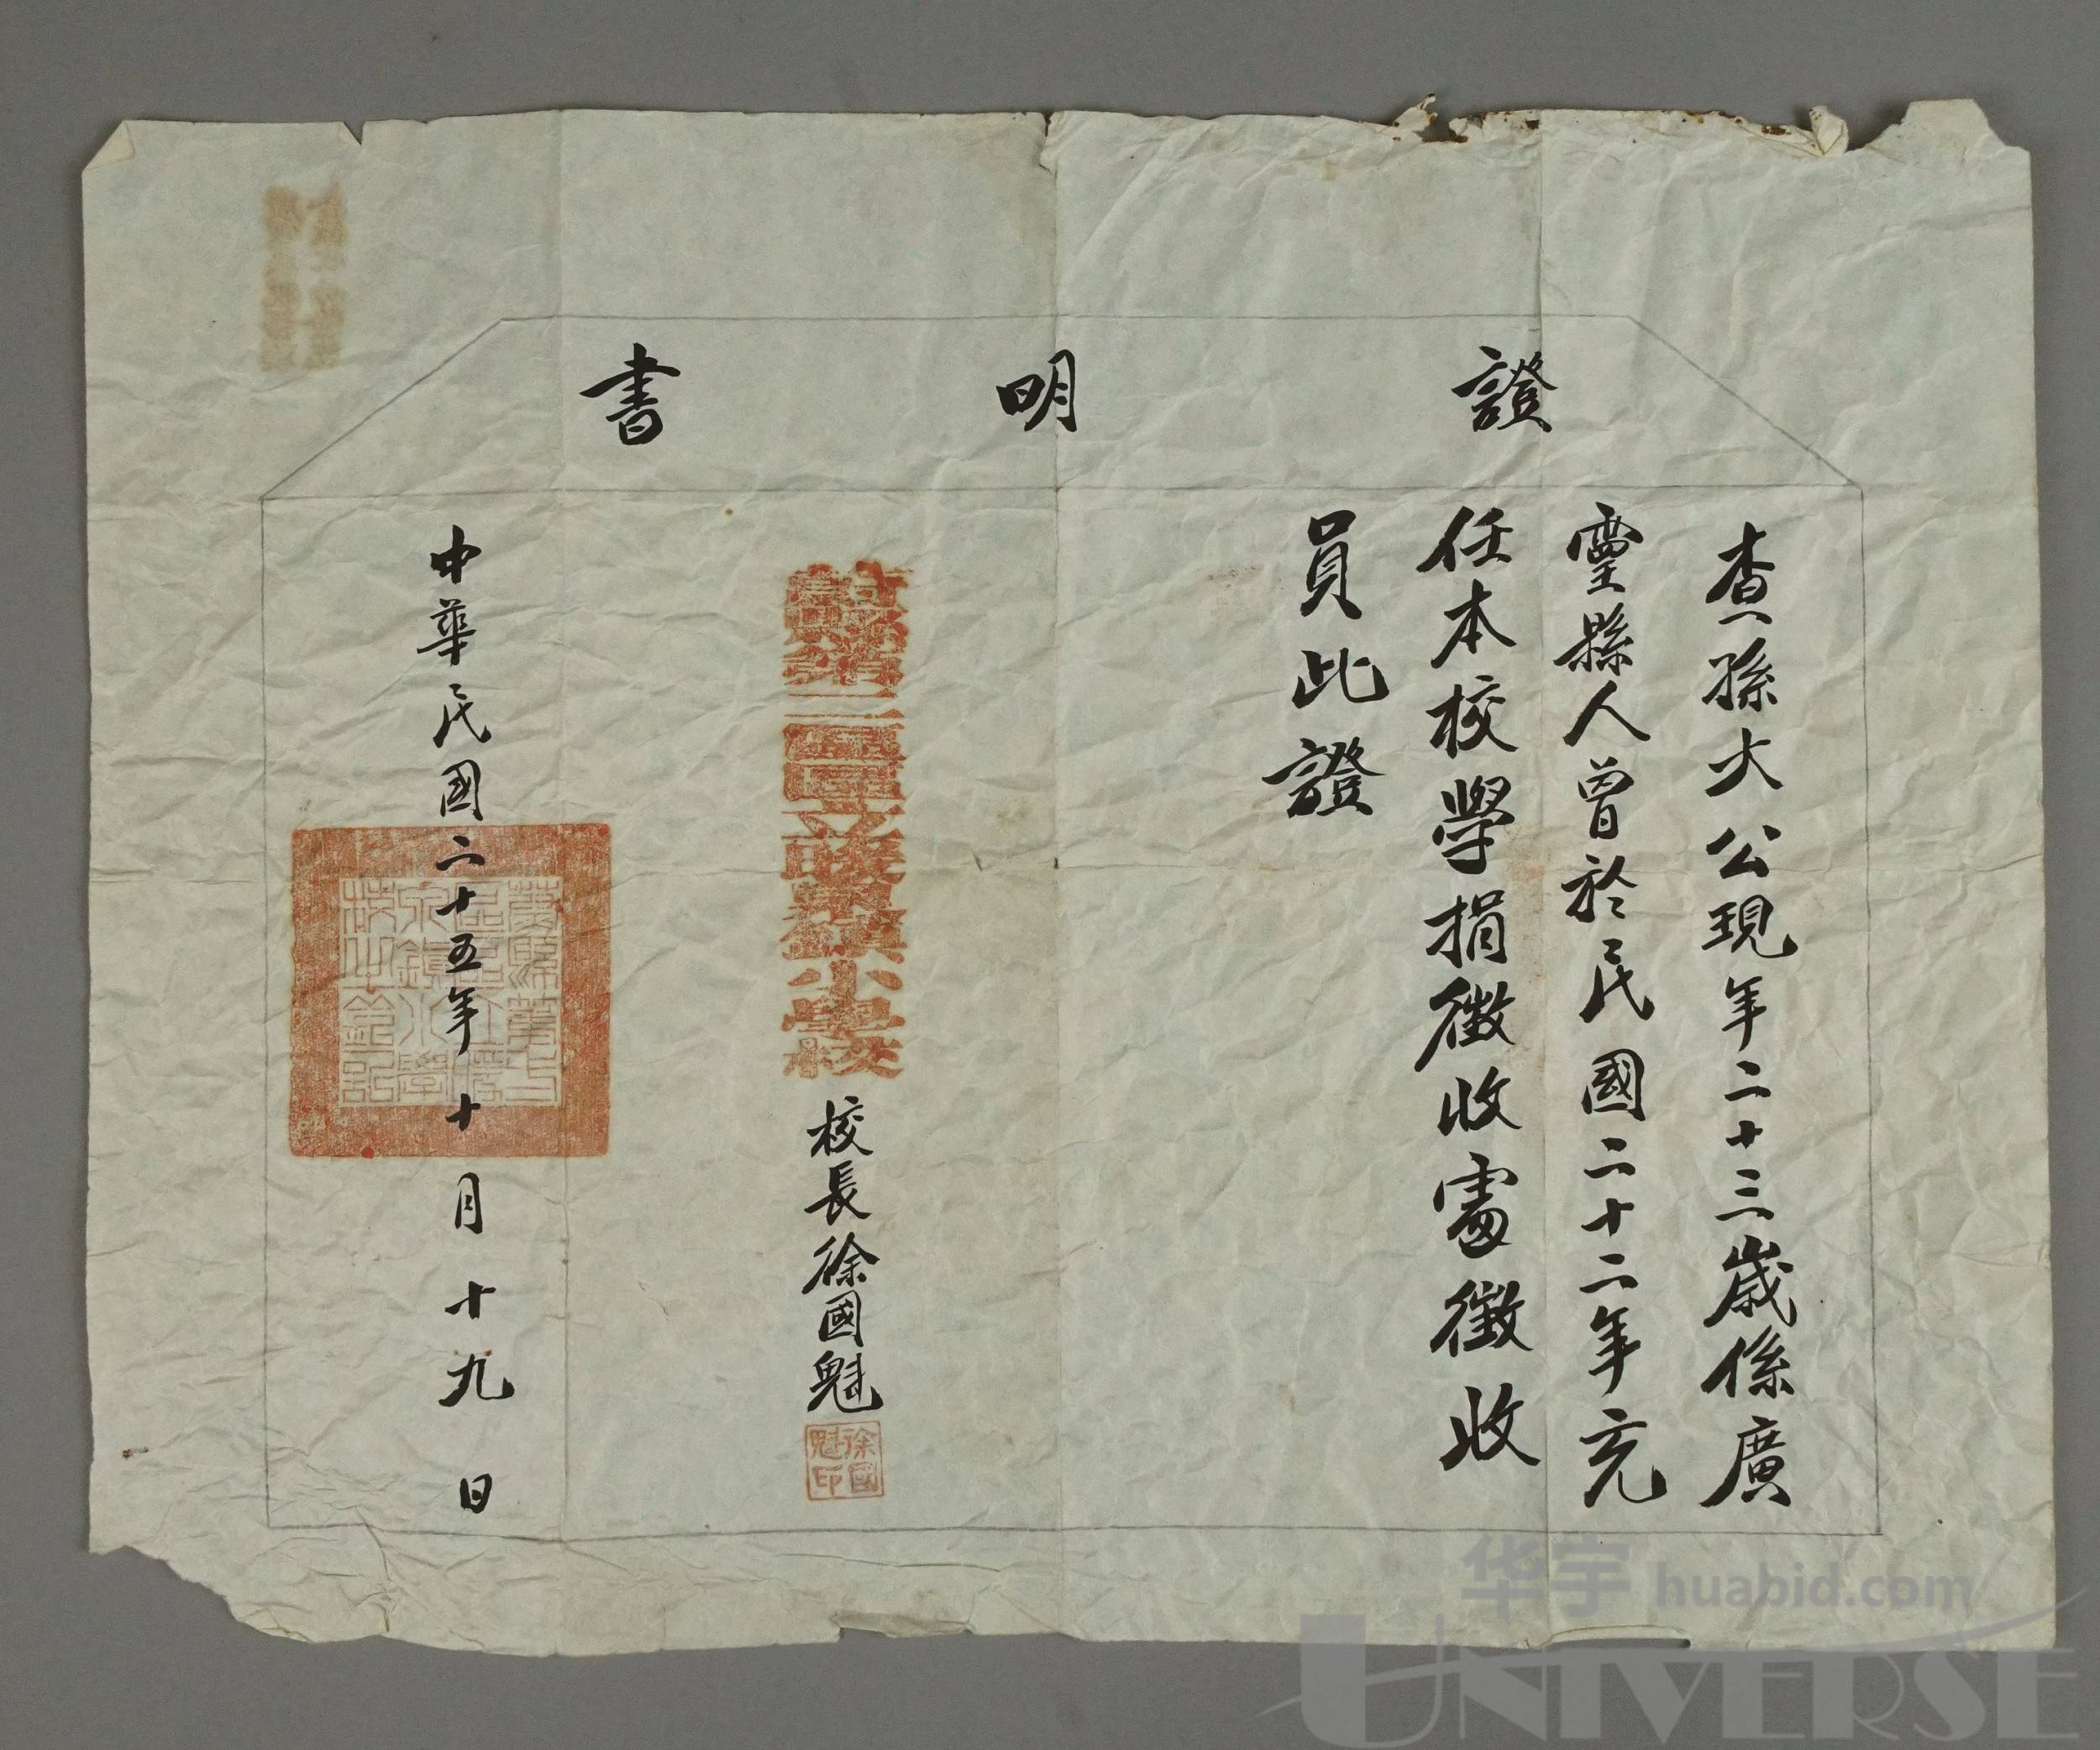 證明書
查孫大公現年二十三歲係廣
靈縣人曾於民國二十二年充
任本校學捐徵收處徵收
員此證
小學校
校長徐國魁
徐國魁印
中華民國二十五年十月十九日
华宇 huabid.com
UNIVERSE